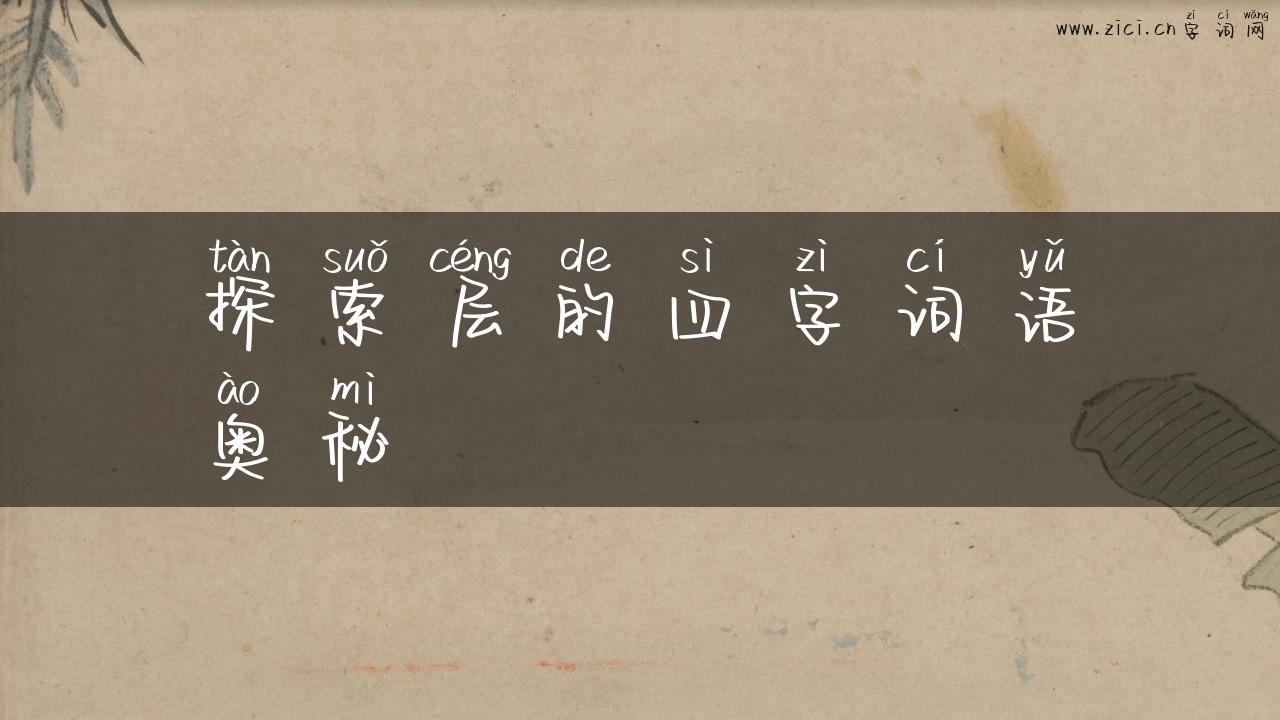 zì cí wǎng
www.zici.cn 字词网
tàn suǒ céng de sì zì cí yǔ
探索层的四字词语
ào mì
奥秘